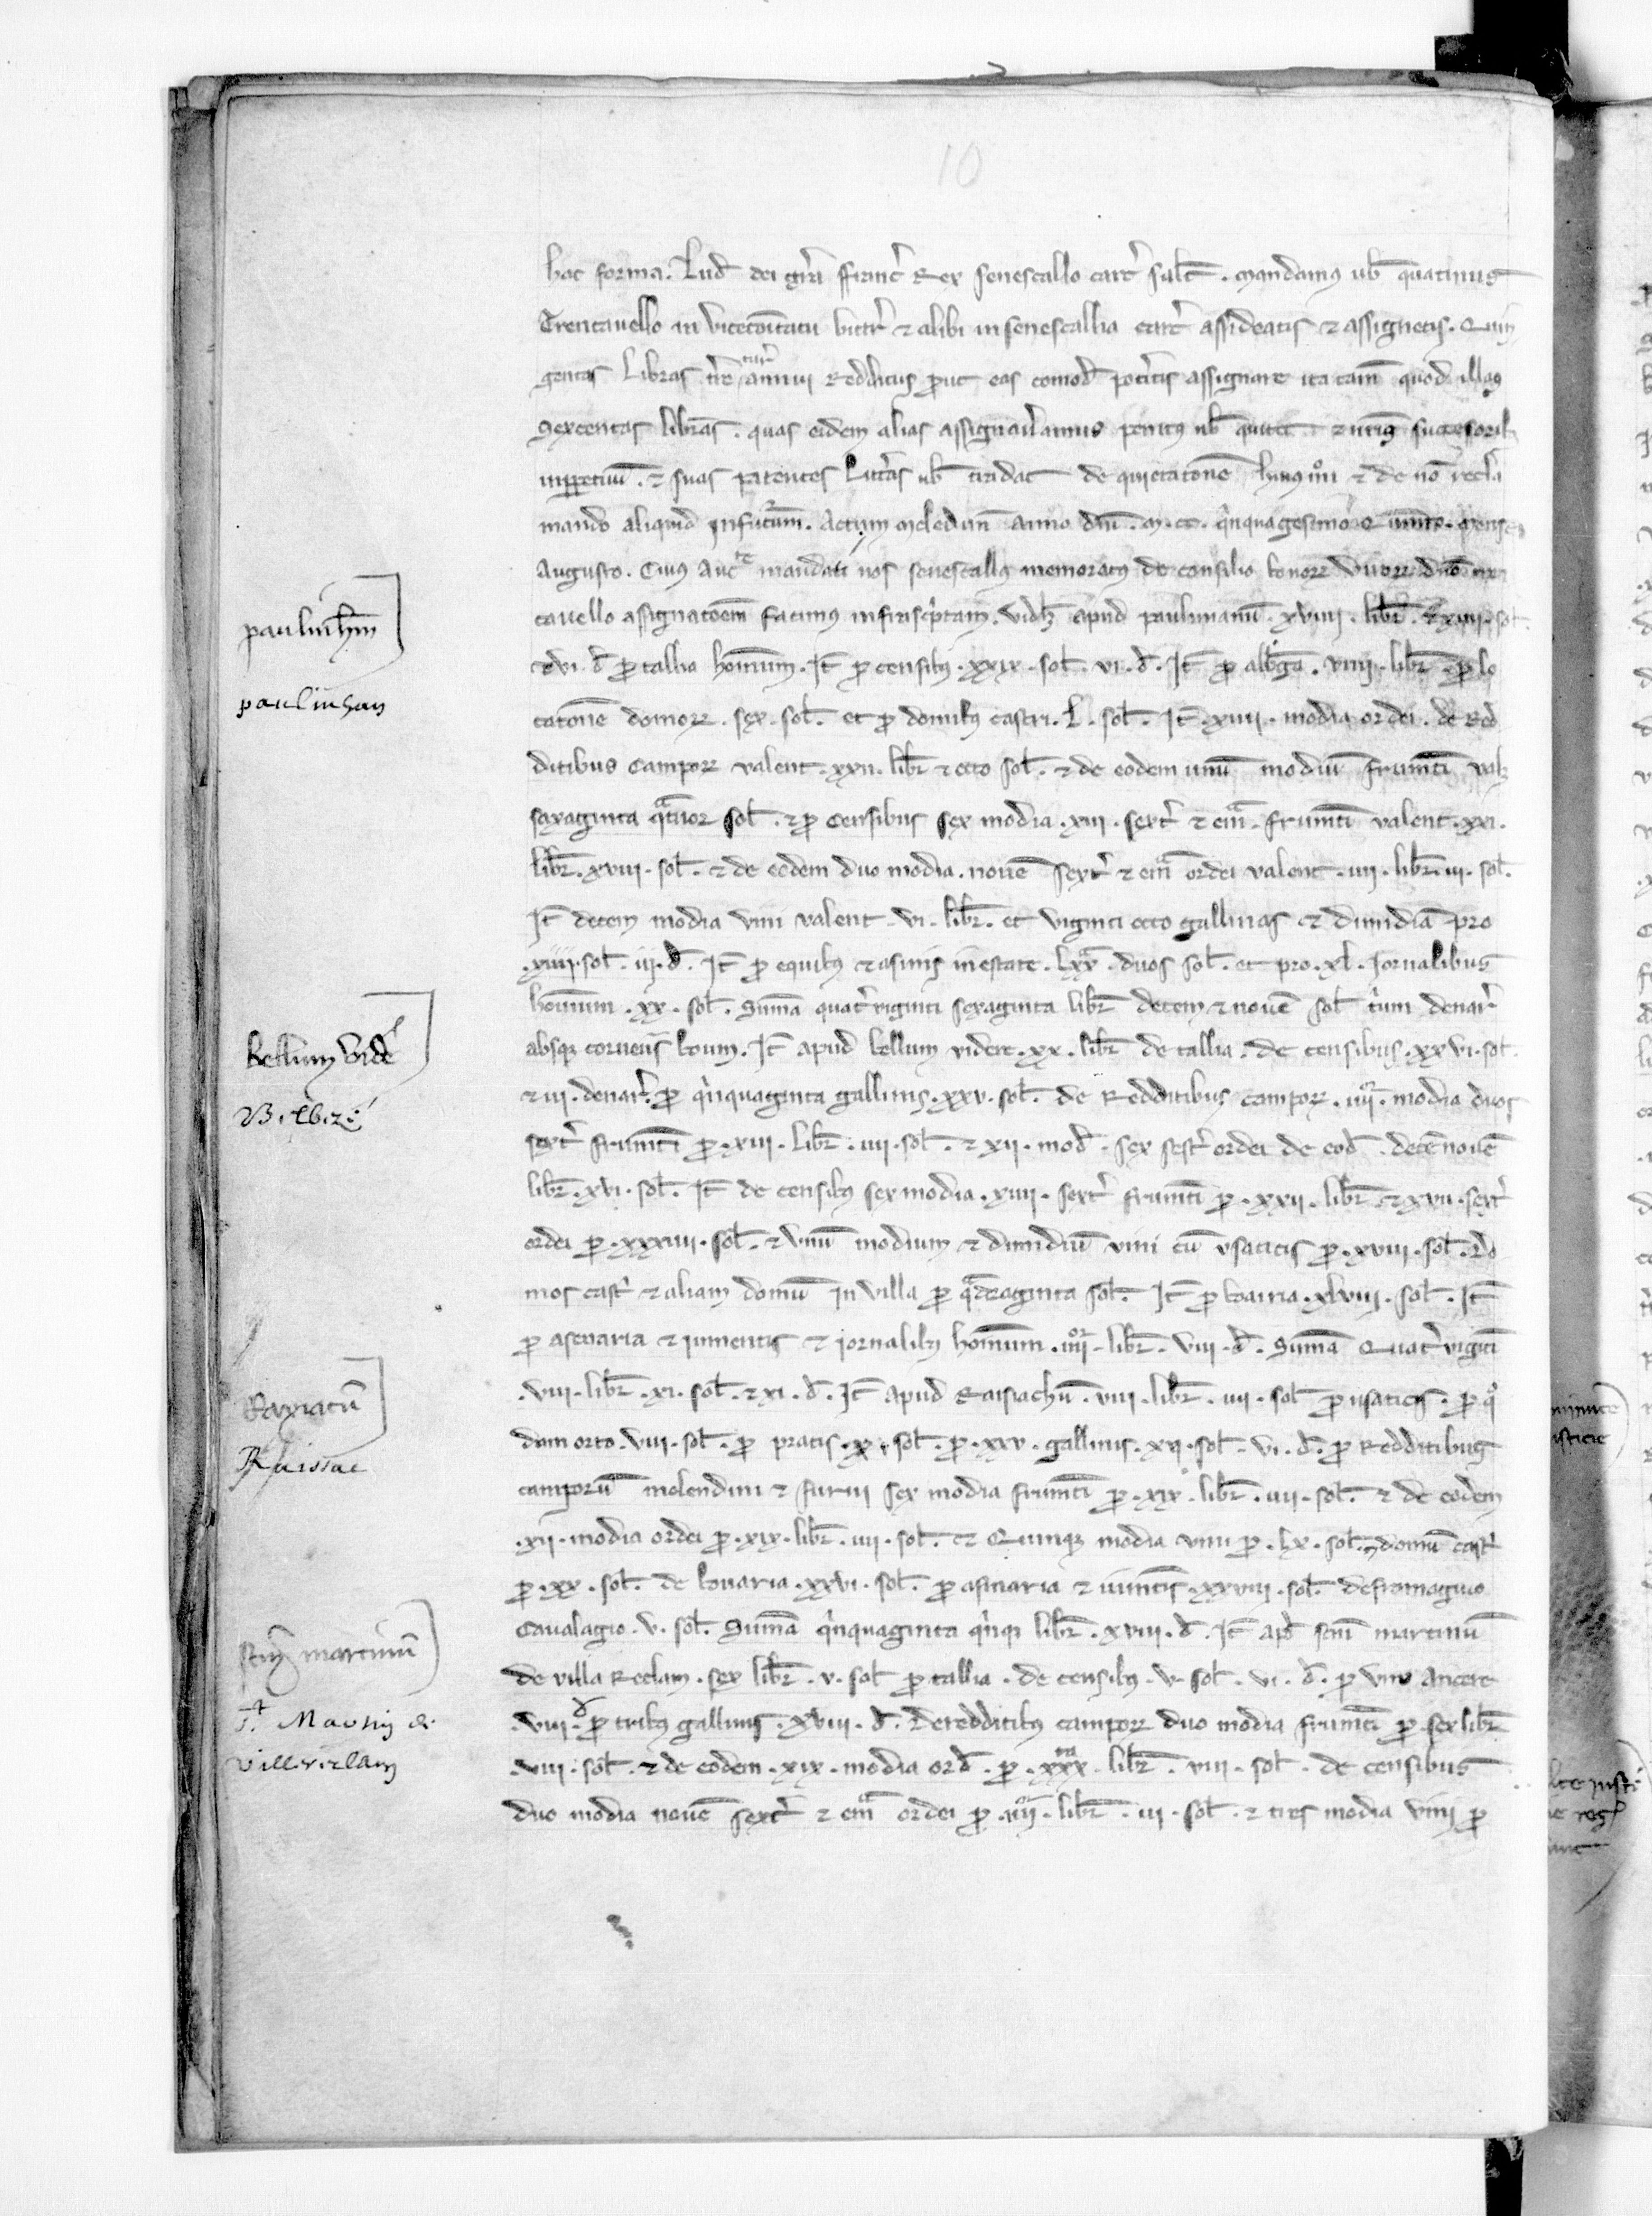 10
hac forma. Lud dei gra ffranc Rex senescallo carc salt. mandamus ub quatinus
Trencauello in vicecoitatu bittr & alibi in senescallia carc assideatis & assignetis. Quin
gentas Libras tur annui Redditus put eas comod potitis assignare ita tam quod illas
Sexcentas libras. quas eidem alias assignaueramus penitus nb quitet
& suas patentes Litteras nb tradat de quietatone & de no recla
mando aliquid in futurum. Actum meledun anno dni. m. cc. qnquagesimo Quinto. mense
Augusto. Cuius auc mandati nos senescallus memoratus de consilio bonorr virorr
cauello assignatoem facimus infrascptam. videlz apud paulinianu. xviiii. libr. & xiiii. sol.
& vi. d p tallia hominum. It p censibus. xxix. sol. vi. d. It p albga. viiii. libr. p lo
catone domorr. sex. sol. et p domibus castri. L. sol. It. xiiii. modia ordei. de Red
ditibus camporr valent. xxii. libr & octo sol. & de eodem unu modiu frumti valz
sexaginta qtuor sol. & p censibus sex modia. xiii. sext & em frumti valent. xxi.
libr. xviii. sol. & de eodem duo modia. noue sext & em ordei valent. iiii. libr. iii. sol.
It decem modia vini valent. vi. libr. et viginti octo gallinas & dimidia pro
xiiii. sol. iii. d. It p equibus & asinis in estate. lxx. duos sol. et pro. xl. Jornalibus
hominum. xx. sol. Suma quatriginti sexaginta libr decem & noue sol trium denar
absqz corueiis boum. It apud bellum videre. xx. libr de tallia. de censibus. xxvi. sol.
& iii. denar. p qnquaginta gallinis. xxv. sol. de Redditibus camporr. iiii. modia duos
sext frumti p. xiii. libr. iiii. sol. & xii. mod. sex sest ordei de eod. dece noue
libr. xvi. sol. It de censibus sex modia. xiiii. sext frumti p. xxii. libr & xvii. sext
ordei p. xxxiiii. sol. & unu modium & dimidiu vini cu usaticis p. xviii. sol. do
mos castr & aliam domu in villa p qdraginta sol. It p boaria. xlviii. sol. It
p asenaria & iumentis & jornalibus hominum. iiii. libr. viii. d. Suma Quatr viginti
viii. libr. xi. sol. & xi. d. It apud Raisiachu. viii. libr. iiii. sol p usaticis. p q
dam orto. viii. sol. p pratis. x. sol. p. xxv. gallinis. xii. sol. vi. d. p Redditibus
camporu molendini & furni sex modia frumti p. xix. libr. iiii. sol. & de eodem
xii. modia ordei p. xix. libr. iiii. sol. & Quinqz modia vini p. lx. sol. domu castr
p. xx. sol. de bouaria. xxvi. sol. p asinaria & iumtis. xxviii. sol. de fromagiuo
Caualagio. v. sol. Suma qnquaginta qnqz libr. xviii. d. It apd scm martinu
de villa Reclam. sex libr. v. sol p tallia. de censibus. v. sol. vi. d. p uno ancere
viii. d p tribus gallinis. xviii. d. de redditibus camporr duo modia frumti p sex libr
viii. sol. & de eodem. xix. modia ord. p. xxx. libr. viii. sol. de censibus
duo modia noue sext & em ordei p. iiii. libr. iii. sol. & tres modia vini p
paulinhm
paulinhan
bellum vide
Belbeze
Raxiacu
Raissac
scm martinu
St. Martin de
villerelam